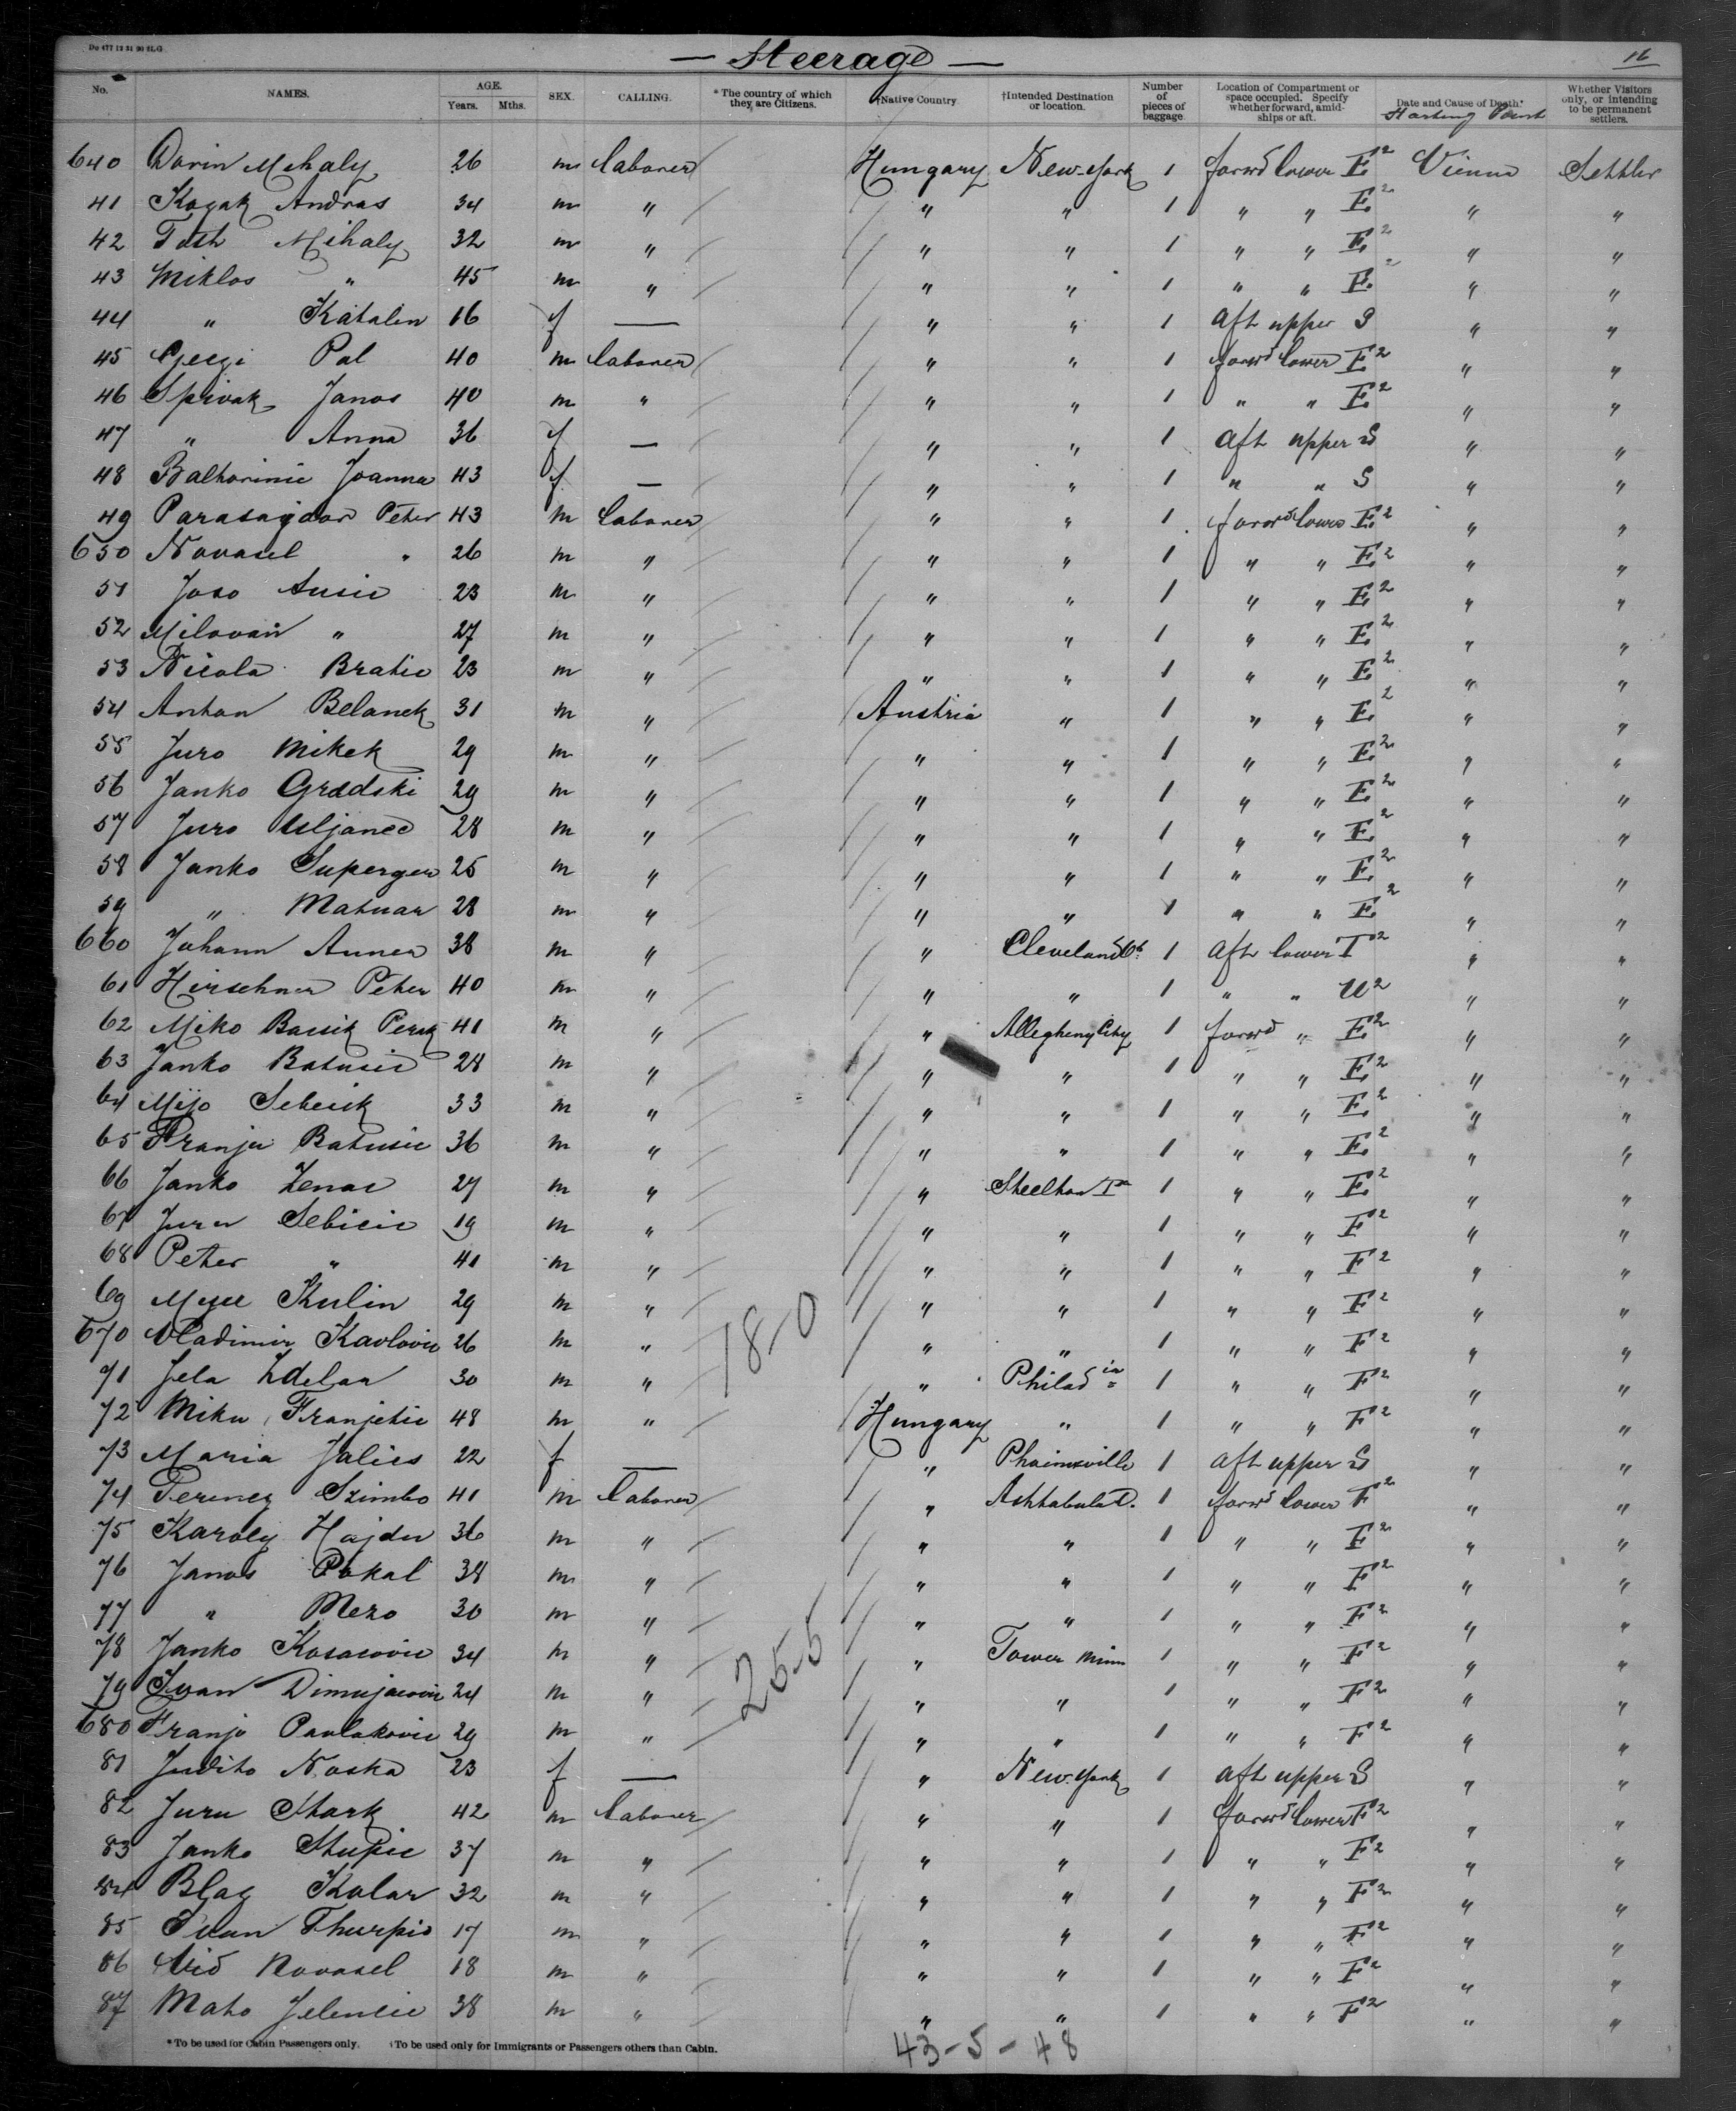 Do 477 12 31 90 H.G
— Steerage —
16
No. NAMES. AGE. Years. Mths. SEX. CALLING. * The country of which they are Citizens. †Native Country †Intended Destination or location. Number of pieces of baggage Location of Compartment or space occupied. Specify whether forward, amidships or aft. Date and Cause of Death. Starting Point Whether Visitors only, or intending to be permanent settlers.
640 Dorin Mihaly 26 m laborer Hungary New-York 1 forwd lower E2 Vienna Settler
41 Kozak Andras 34 m " " " 1 " " E2 " "
42 Toth Mihaly 32 m " " " 1 " " E2 " "
43 Miklos " 45 m " " " 1 " " E2 " "
44 " Katalin 16 f — " " 1 aft upper S " "
45 Gecgi Pal 40 m laborer " " 1 forwd lower E2 " "
46 Spivak Janos 40 m " " " 1 " " E2 " "
47 " Anna 36 f — " " 1 aft upper S " "
48 Baltorinic Joanna 43 f — " " 1 " " S " "
49 Parasajdor Peter 43 m laborer " " 1 forwd lower E2 " "
650 Novasel " 26 m " " " 1 " " E2 " "
51 Joso Susic 23 m " " " 1 " " E2 " "
52 Milovan " 27 m " " " 1 " " E2 " "
53 Nicola Bratic 23 m " " " 1 " " E2 " "
54 Anton Belanek 31 m " Austria " 1 " " E2 " "
55 Juro Mikek 29 m " " " 1 " " E2 " "
56 Janko Gradski 29 m " " " 1 " " E2 " "
57 Juro Uljanec 28 m " " " 1 " " E2 " "
58 Janko Superger 25 m " " " 1 " " E2 " "
59 " Matuar 28 m " " " 1 " " E2 " "
660 Johann Auner 38 m " " Cleveland Oh. 1 Aft lower T2 " "
61 Hirschner Peter 40 m " " " 1 " " U2 " "
62 Miko Bacsik Persk 41 m " " Allegheny City 1 forwd " E2 " "
63 Janko Batusic 28 m " " " 1 " " E2 " "
64 Mijo Sebecik 33 m " " " 1 " " E2 " "
65 Franja Batusic 36 m " " " 1 " " E2 " "
66 Janko Zenac 27 m " " Steelton Pa 1 " " E2 " "
67 Jura Sebicic 19 m " " " 1 " " F2 " "
68 Peter " 41 m " " " 1 " " F2 " "
69 Mijce Kulin 29 m " " " 1 " " F2 " "
670 Vladimir Kavlovic 26 m " 18-0 " " 1 " " F2 " "
71 Jela Zdelar 30 m " " Philadia 1 " " F2 " "
72 Miku Franjetic 48 m " Hungary " 1 " " F2 " "
73 Maria Jalics 22 f — " Phoinixville 1 aft upper S " "
74 Ferencz Szimbo 41 m laborer " Ashtabula O. 1 forwd lower F2 " "
75 Karoly Hajdu 36 m " " " 1 " " F2 " "
76 Janos Pokal 38 m " " " 1 " " F2 " "
77 " Mezo 30 m " " " 1 " " F2 " "
78 Janko Kosacovic 34 m " 25-5 " Tower Minn 1 " " F2 " "
79 Ivan Dimnjacovic 24 m " " " 1 " " F2 " "
680 Franjo Pavlakovic 29 m " " " 1 " " F2 " "
81 Judito Noska 23 f — " New-York 1 aft upper S " "
82 Juru Stark 42 m laborer " " 1 forwd lower F2 " "
83 Janko Stupic 37 m " " " 1 " " F2 " "
84 Blaz Kolar 32 m " " " 1 " " F2 " "
85 Ivan Thurpis 17 m " " " 1 " " F2 " "
86 Vid Novosel 18 m " " " 1 " " F2 " "
87 Mato Jelencic 38 m " " " 1 " " F2 " "
* To be used for Cabin Passengers only. †To be used only for Immigrants or Passengers others than Cabin.
43-5-48